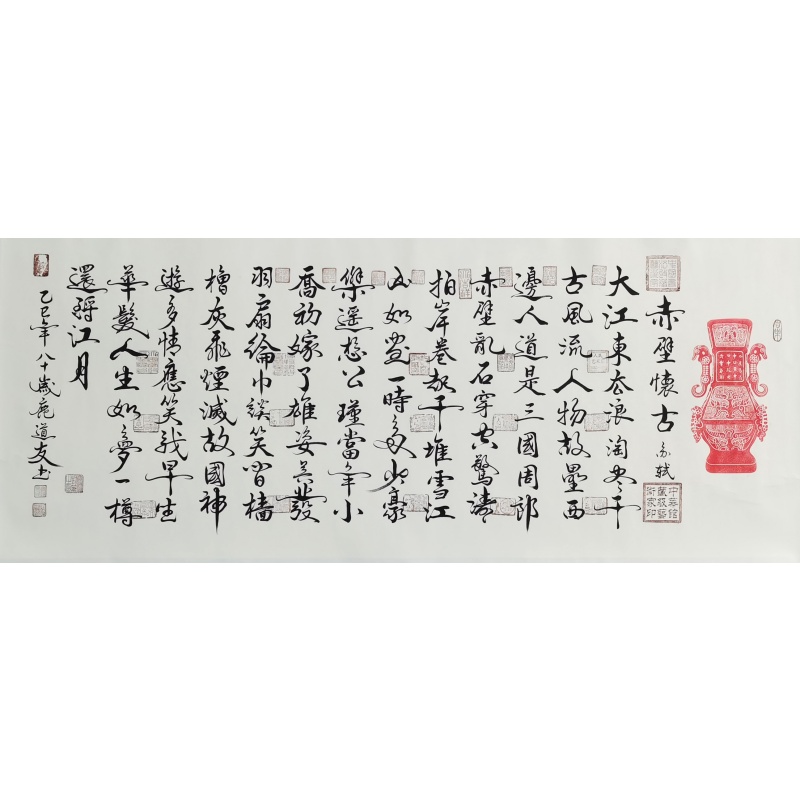 赤壁懷古 蘇軾
大江東去浪淘盡千
古風流人物故壘西
邊人道是三國周郎
赤壁亂石穿空驚濤
拍岸卷起千堆雪江
山如畫一時多少豪
傑遥想公瑾當年小
喬初嫁了雄姿英發
羽扇綸巾談笑間檣
櫓灰飛煙滅故國神
遊多情應笑我早生
華髮人生如夢一樽
還酹江月
乙巳年八十歲鹿道友书